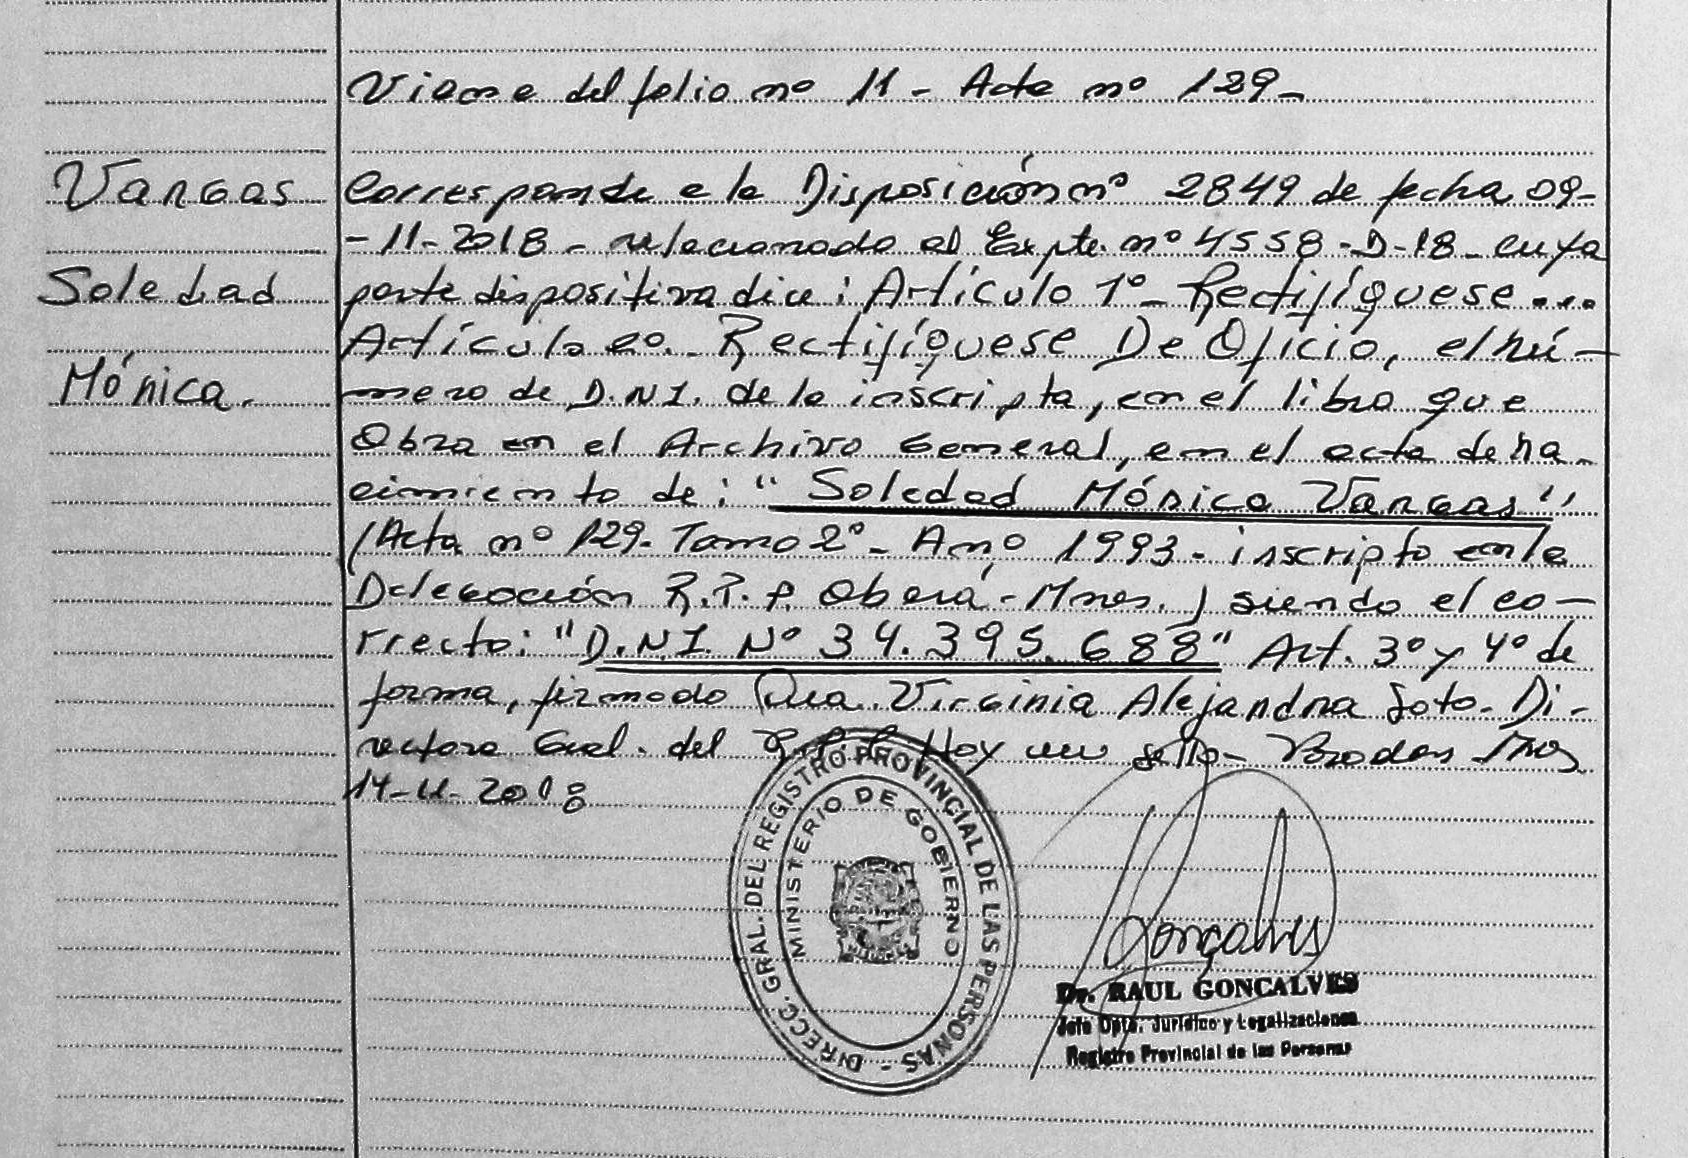 Viene del folio nº 11 - Acta nº 129 -
Vargas
Soledad
Mónica.
Corresponde a la Disposición nº 2849 de fecha 09-
-11-2018 - relacionado al Expte. nº 4558-D-18 - cuya
parte dispositiva dice: Artículo 1º - Rectifíquese ...
Artículo 2º. Rectifíquese De Oficio, el nú-
mero de D.N.I. de la inscripta, en el libro que
Obra en el Archivo General, en el acta de na-
cimiento de: "Soledad Mónica Vargas"
(Acta nº 129 - Tomo 2º - Año 1993 - inscripto en la
Delegación R.P.P. Oberá - Mnes.) siendo el co-
rrecto: "D.N.I. Nº 34.395.688" Art. 3º y 4º de
forma, firmado Dra. Virginia Alejandra Soto - Di-
rectora Gral. del R.P.P. Hay un sello - Posadas Mnes
14-11-2018
DIRECC. GRAL. DEL REGISTRO PROVINCIAL DE LAS PERSONAS -
MINISTERIO DE GOBIERNO
Goncalves
Dr. RAUL GONCALVES
Jefe Dpto. Jurídico y Legalizaciones
Registro Provincial de las Personas